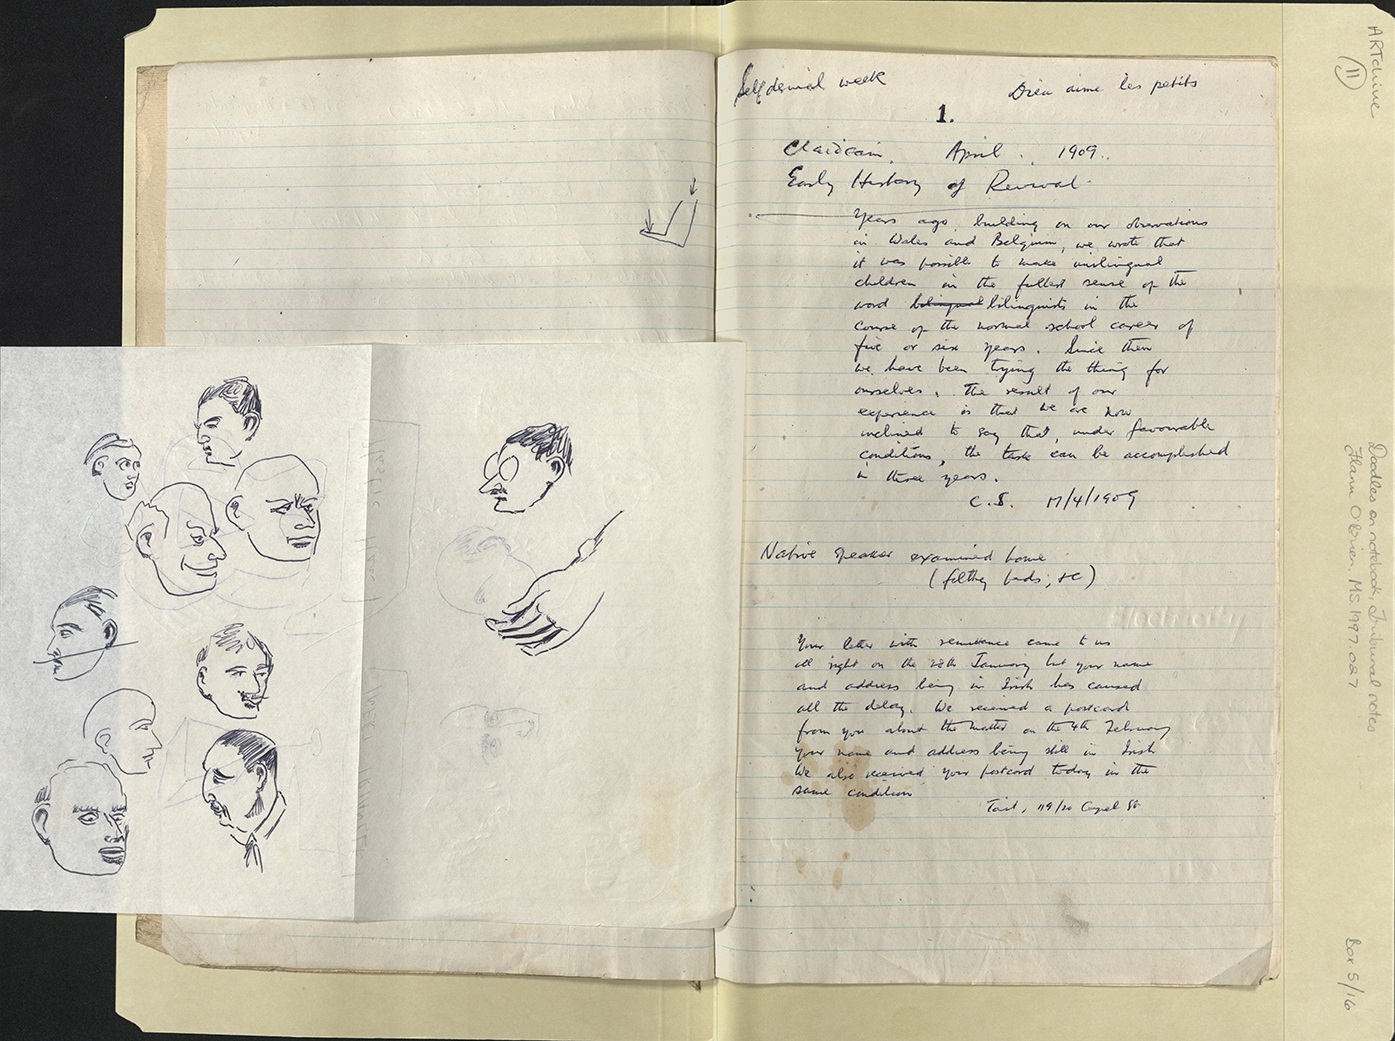 Self denial week
Dieu aime les petits
1.
Claideam, April. 1909.
Early History of Revival
Years ago, building on our observations
in Wales and Belgium, we wrote that
it was possible to make unilingual
children in the fullest sense of the
word bilingual bilinguists in the
course of the normal school career of
five or six years. Since then
we have been trying the thing for
ourselves. The result of our
experience is that we are now
inclined to say that, under favourable
conditions, the task can be accomplished
in three years.
C.S. 17/4/1909
Native speaker examined home
(filthy beds, &c)
Your letter with remittance came to us
all right on the 28th January but your name
and address being in Irish has caused
all the delay. We received a postcard
from you about the matter on the 4th February
your name and address being still in Irish
We also received your postcard today in the
same condition
Tait, 119/20 Capel St
ARTchive
11
Doodles on notebook, Tribunal notes
Flann O'Brien. MS 1997.027
Box 5/16